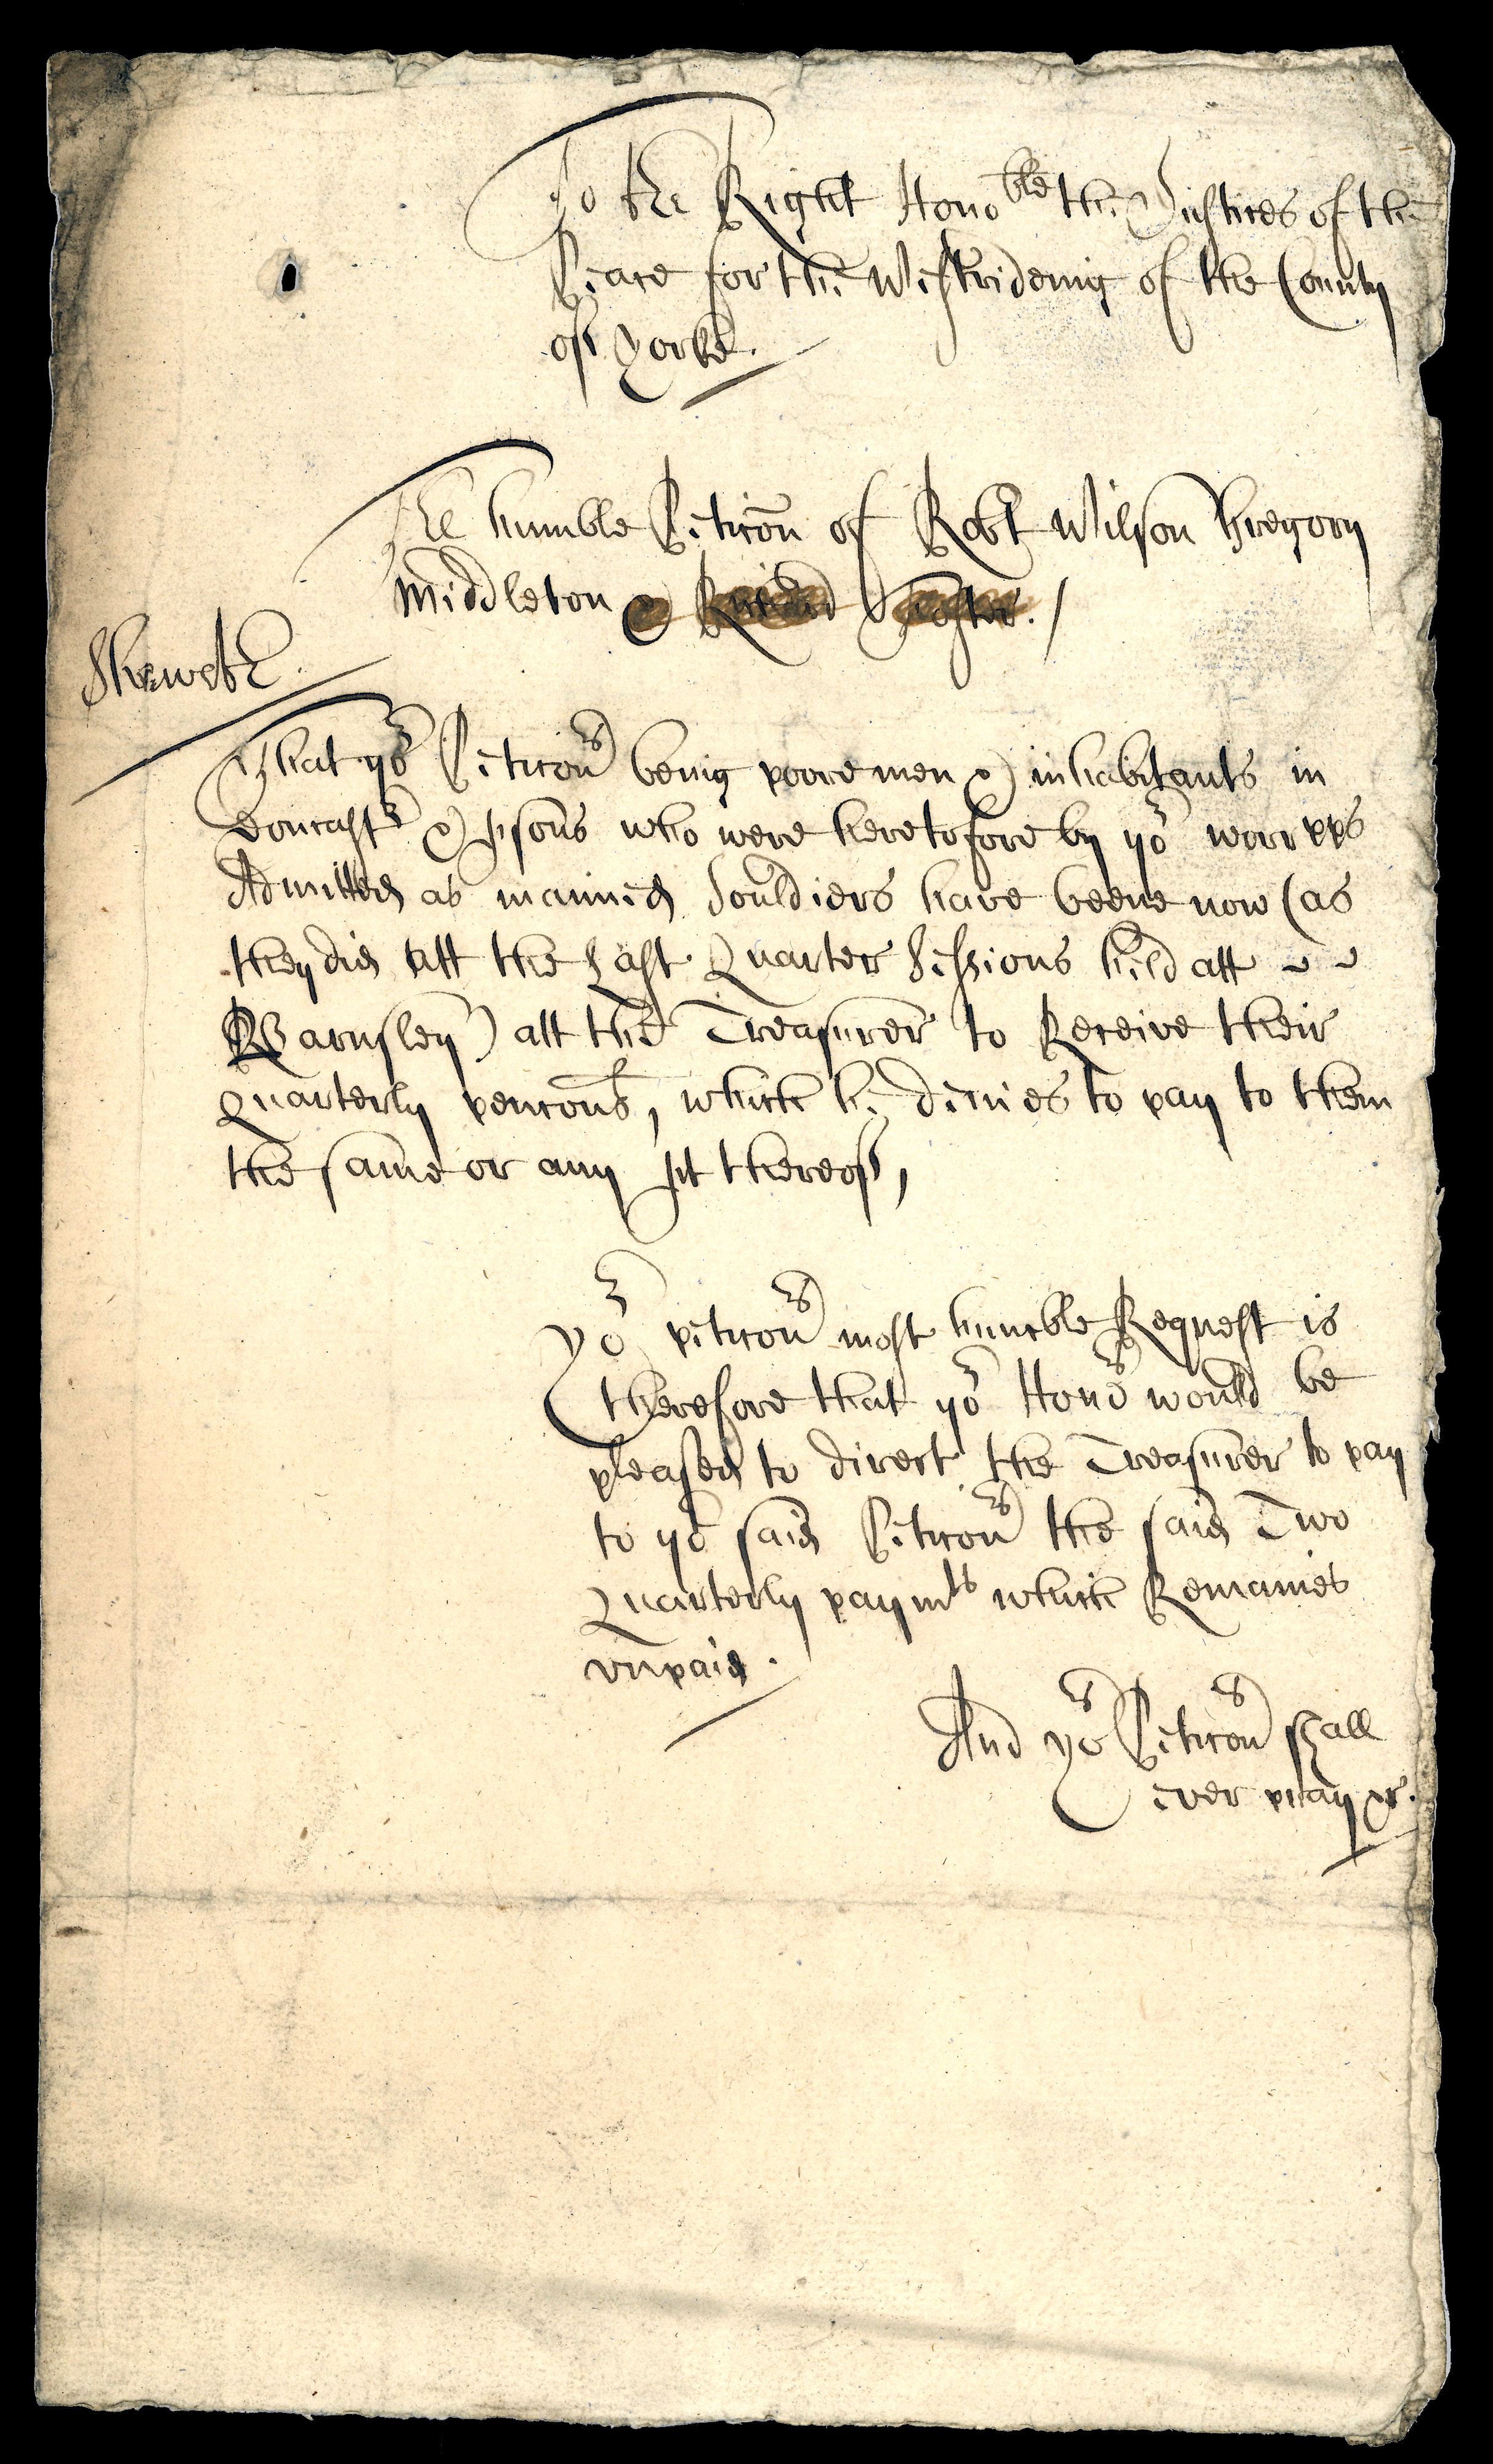 To the Right Hono:ble the Justices of the
Peace for the Westrideing of the County
off Yorke.
The humble Peticon of Robt Wilson Gregory
Middleton & Richard Foster./
Sheweth
That yor Peticonrs being poore men & inhabitants in
Doncastr & psons who were heretofore by yor worrpps
Admitted as maimed Souldiers have beene now (as
they did att the Last Quarter Sessions held att
Barnsley) att the Treasurer to Receive their
Quarterly pencons, which he denies to pay to them
the same or any pt thereoff,
Yor peticonrs most humble Request is
therefore that yor Honors would be
pleased to direct the Treasurer to pay
to yor said Peticonrs the said Two
Quarterly paymts which Remaines
vnpaid.
And yor Peticonrs shall
ever pray &c.